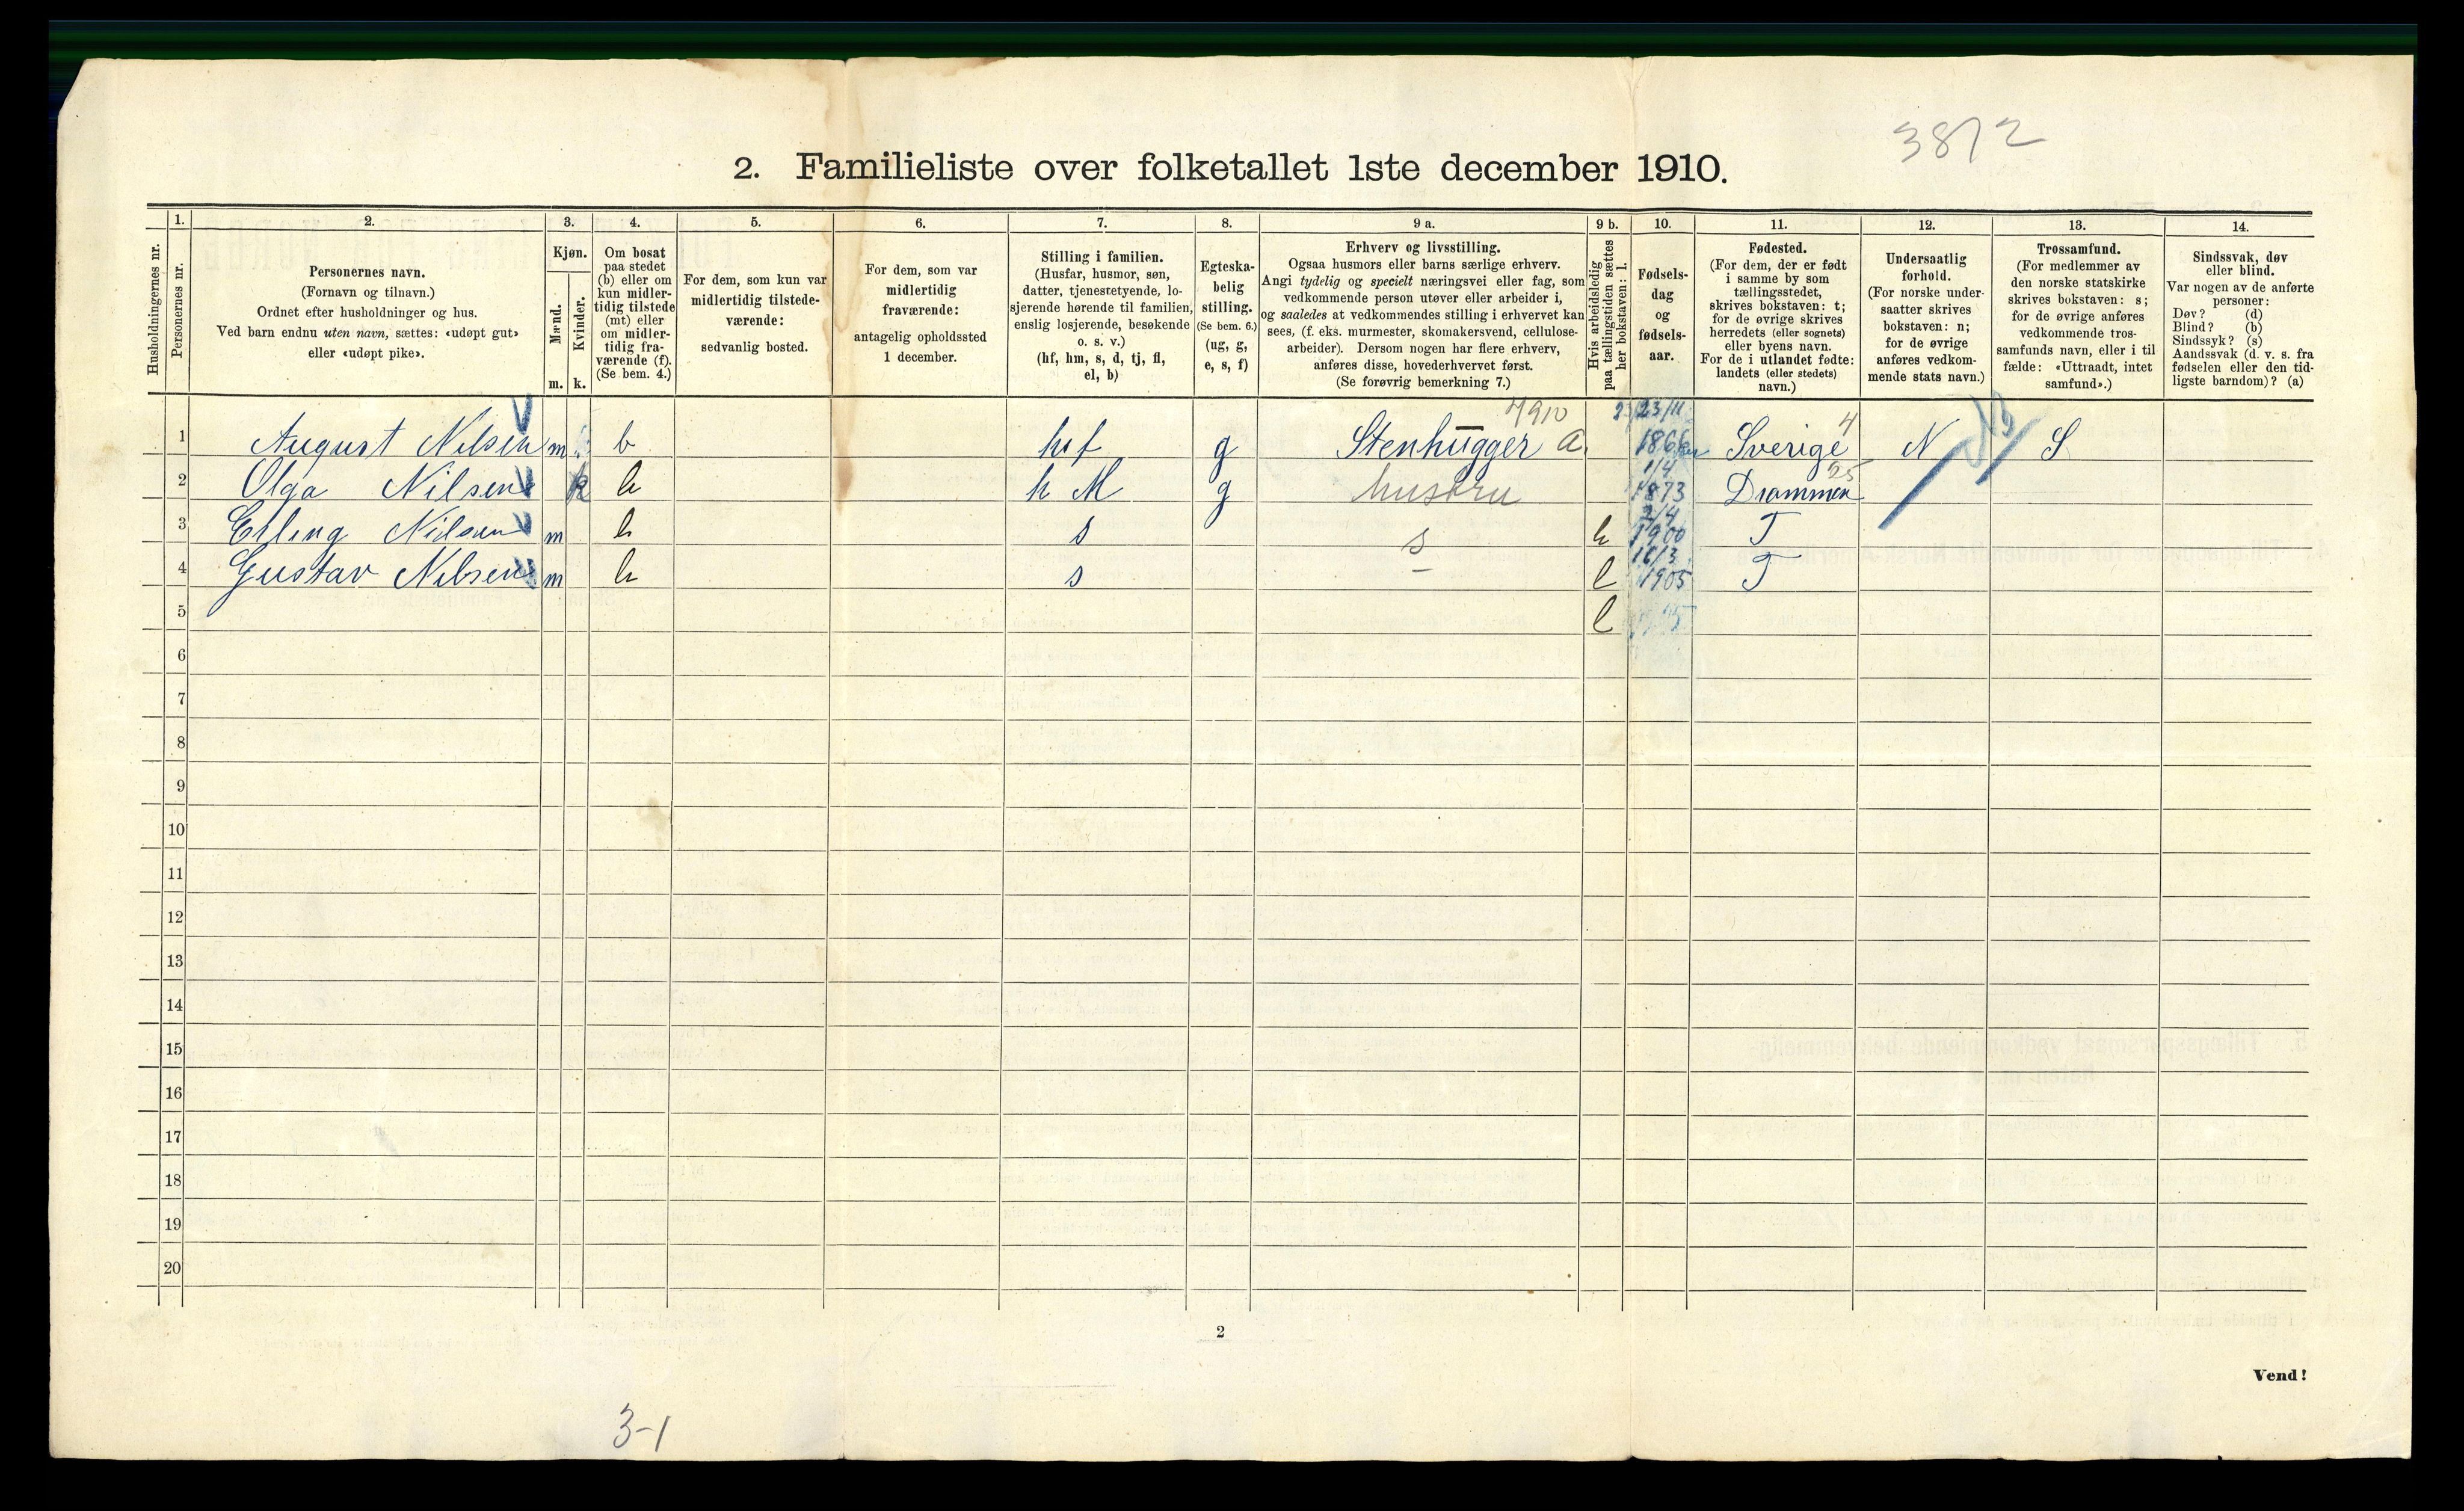 3872
2. Familieliste over folketallet 1ste december 1910.
Husholdningernes nr.
1.
Personernes nr.
2.
Personernes navn.
(Fornavn og tilnavn.)
Ordnet efter husholdninger og hus.
Ved barn endnu uten navn, sættes: «udøpt gut»
eller «udøpt pike».
3.
Kjøn.
Mænd.
Kvinder.
m. k.
4.
Om bosat
paa stedet
(b) eller om
kun midler-
tidig tilstede
(mt) eller
om midler-
tidig fra-
værende (f).
(Se bem. 4.)
5.
For dem, som kun var
midlertidig tilstede-
værende:
sedvanlig bosted.
6.
For dem, som var
midlertidig
fraværende:
antagelig opholdssted
1 december.
7.
Stilling i familien.
(Husfar, husmor, søn,
datter, tjenesretyende, lo-
sjerende hørende til familien,
enslig losjerende, besøkende
o. s. v.)
(hf, hm, s, d, tj, fl,
el, b)
8.
Egteska-
belig
stilling.
(Se bem. 6.)
(ug, g,
e, s, f)
9 a.
Erhverv og livsstilling.
Ogsaa husmors eller barns særlige erhverv.
Angi tydelig og specielt næringsvei eller fag, som
vedkommende person utøver eller arbeider i,
og saaledes at vedkommendes stilling i erhvervet kan
sees, (f. eks. murmester, skomakersvend, cellulose-
arbeider). Dersom nogen har flere erhverv,
anføres disse, hovederhvervet først.
(Se forøvrig bemerkning 7.)
9 b.
Hvis arbeidsledig
paa tællingstiden sættes
her bokstaven: l.
10.
Fødsels-
dag
og
fødsels-
aar.
11.
Fødested.
(For dem, der er født
i samme by som
tællingsstedet,
skrives bokstaven: t;
for de øvrige skrives
herredets (eller sognets)
eller byens navn.
For de i utlandet fødte:
landets (eller stedets)
navn.)
12.
Undersaatlig
forhold.
(For norske under-
saatter skrives
bokstaven: n;
for de øvrige
anføres vedkom-
mende stats navn.)
13.
Trossamfund.
(For medlemmer av
den norske statskirke
skrives bokstaven: s;
for de øvrige anføres
vedkommende tros-
samfunds navn, eller i til
fælde: «Uttraadt, intet
samfund».)
14.
Sindssvak, døv
eller blind.
Var nogen av de anførte
personer:
Døv? (d)
Blind? (b)
Sindssyk? (s)
Aandssvak (d. v. s. fra
fødselen eller den tid-
ligste barndom)? (a)
4910 23/11 4
1 August Nilsen m b hf g Stenhugger a. 1866 Sverige N S
1/4 25
2 Olga Nilsen k b h M g hustru 1873 Drammen
2/4
3 Erling Nilsen m b s s 1900 T
16/3
4 Gustav Nilsen m b s – l 1905 T
5 l
6
7
8
9
10
11
12
13
14
15
16
17
18
19
20
2
Vend!
3-1